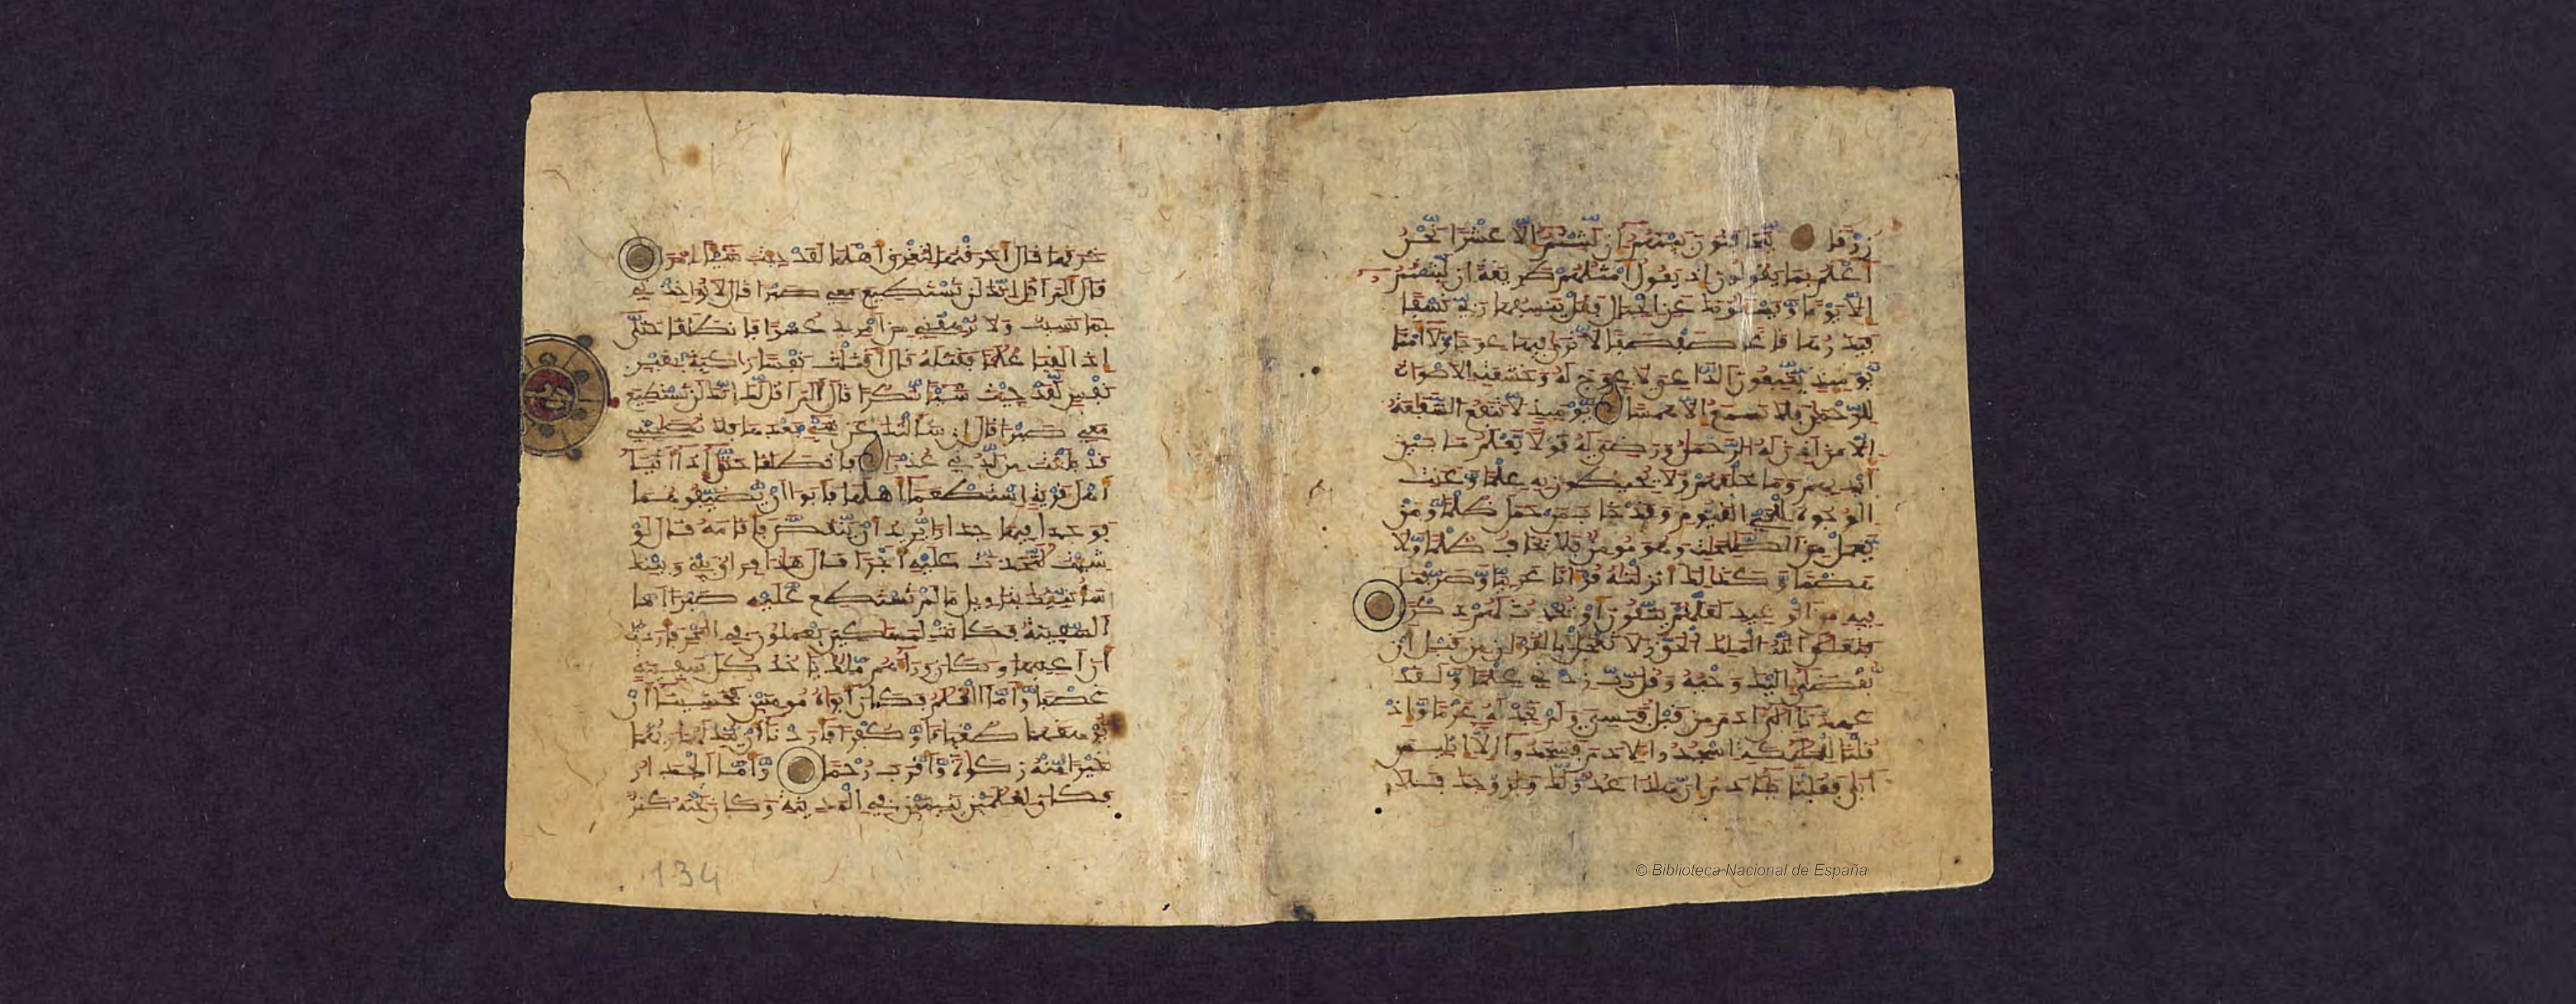 زرقا يتخفتون بينهم إن لبثتم إلا عشرا نحن
أعلم بما يقولون إذ يقول أمثلهم طريقة إن لبثتم
إلا يوما ويسئلونك عن الجبال فقل ينسفها ربي نسفا
فيذرها قاعا صفصفا لا ترى فيها عوجا ولا أمتا
يومئذ يتبعون الداعي لا عوج له وخشعت الاصوات
للرحمن فلا تسمع إلا همسا يومئذ لا تنفع الشفعة
إلا من أذن له الرحمن ورضي له قولا يعلم ما بين
أيديهم وما خلفهم ولا يحيطون به علما وعنت
الوجوه للحي القيوم وقد خاب من حمل ظلما ومن
يعمل من الصلحت وهو مومن فلا يخاف ظلما ولا
هضما وكذلك أنزلنه قرءانا عربيا وصرفنا
فيه من الوعيد لعلهم يتقون أو يحدث لهم ذكرا
فتعلى الله الملك الحق ولا تعجل بالقرءان من قبل أن
يقضى إليك وحيه وقل رب زدني علما ولقد
عهدنا إلى ءادم من قبل فنسي ولم نجد له عزما وإذ
قلنا للملئكة اسجدوا لادم فسجدوا إلا إبليس
أبى فقلنا يادم إن هذا عدو لك ولزوجك فلا
خرقها قال أخرقتها لتغرق أهلها لقد جئت شيئا إمرا
قال ألم أقل إنك لن تستطيع معي صبرا قال لا تواخذني
بما نسيت ولا ترهقني من أمري عسرا فانطلقا حتى
إذا لقيا غلما فقتله قال أقتلت نفسا زاكية بغير
نفس لقد جئت شيئا نكرا قال ألم أقل لك إنك لن تستطيع
معي صبرا قال إن سألتك عن شيء بعدها فلا تصحبني
قد بلغت من لدني عذرا فانطلقا حتى إذا أتيا
أهل قرية استطعما أهلها فأبوا أن يضيفوهما
فوجدا فيها جدارا يريد أن ينقض فأقامه قال لو
شئت لتخذت عليه أجرا قال هذا فراق بيني وبينك
سأنبئك بتاويل ما لم تستطع عليه صبرا أما
السفينة فكانت لمسكين يعملون في البحر فأردت
أن أعيبها وكان وراءهم ملك ياخذ كل سفينة
غصبا وأما الغلم فكان أبواه مومنين فخشينا أن
يرهقهما طغينا وكفرا فأردنا أن يبدلهما ربهما
خيرا منه زكوة وأقرب رحما وأما الجدار
فكان لغلمين يتيمين في المدينة وكان تحته كنز
134
© Biblioteca Nacional de España